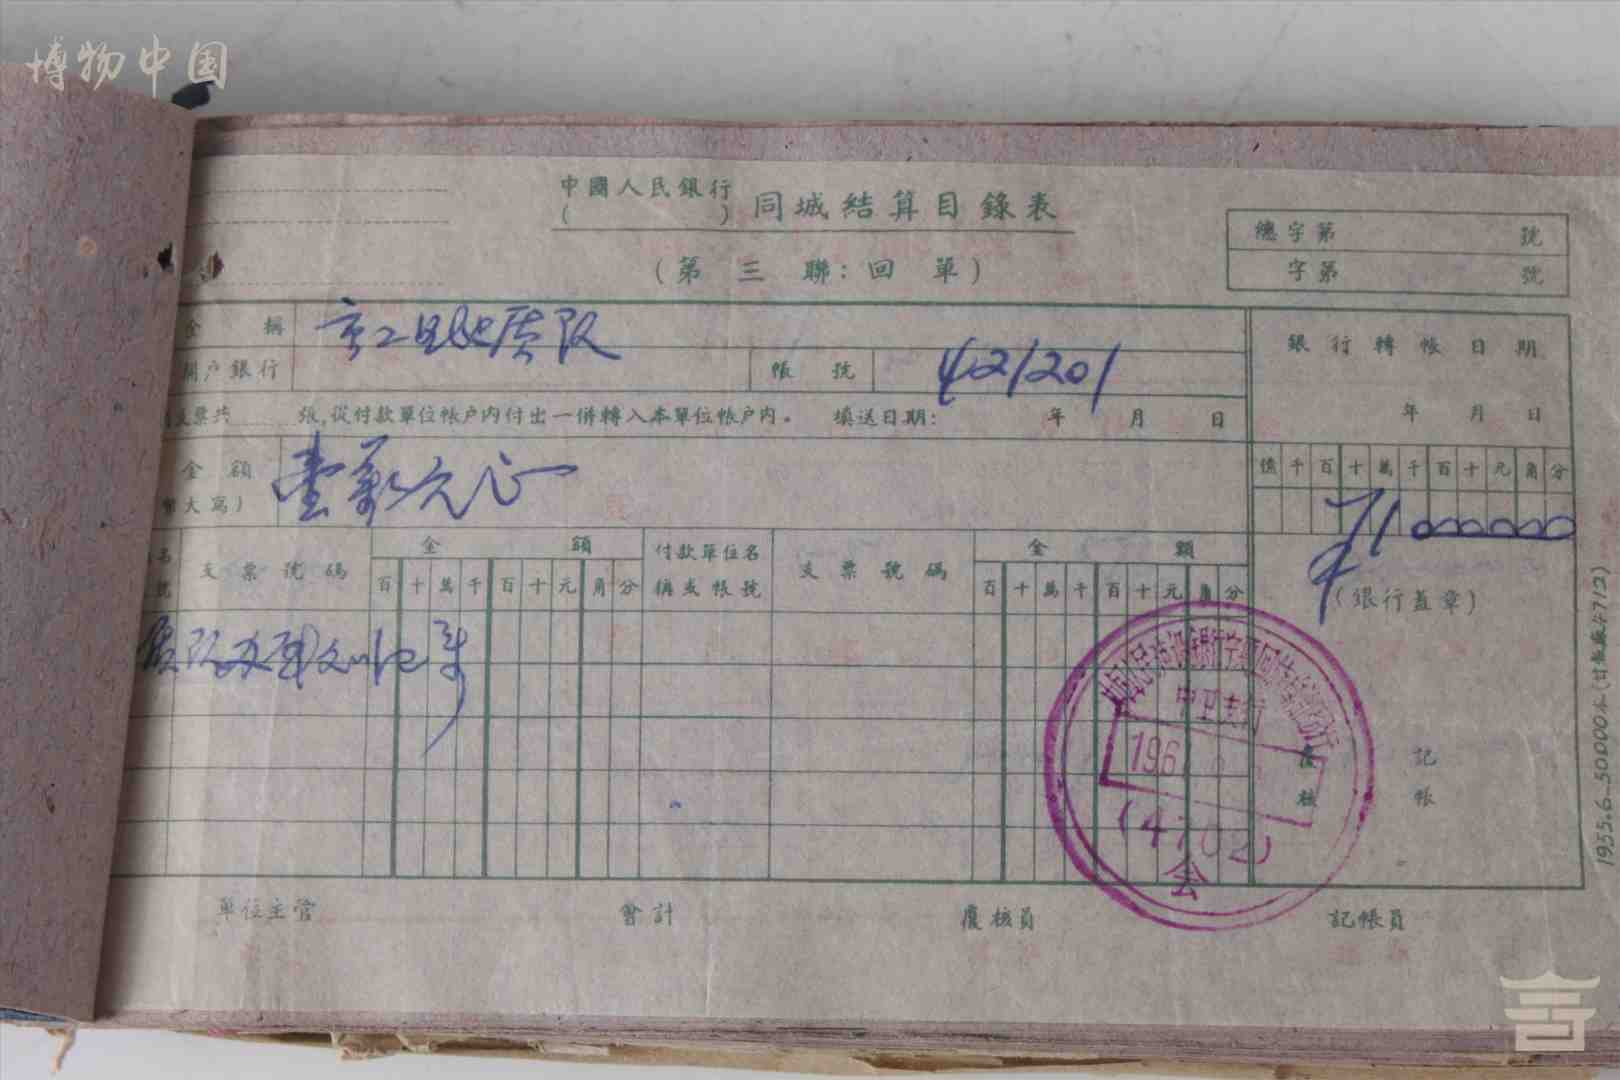 博物中国
中國人民銀行
( ) 同城結算目錄表
(第三聯:回單)
總字第 號
字第 號
全 稱
開户銀行
帳 號 42/201
支票共 張,從付款單位帳户内付出一併轉入本單位帳户内。 填送日期: 年 月 日
銀行轉帳日期
年 月 日
金額 壹萬元正
大寫)
億千百十萬千百十元角分
1000000
支票號碼
金 額
百十萬千百十元角分
付款單位名
稱或帳號
支票號碼
金 額
百十萬千百十元角分
(銀行蓋章)
中卫支行
196
(4702)
会
復核
記帳
單位主管 會計 覆核員 記帳員
1955.6.50000本